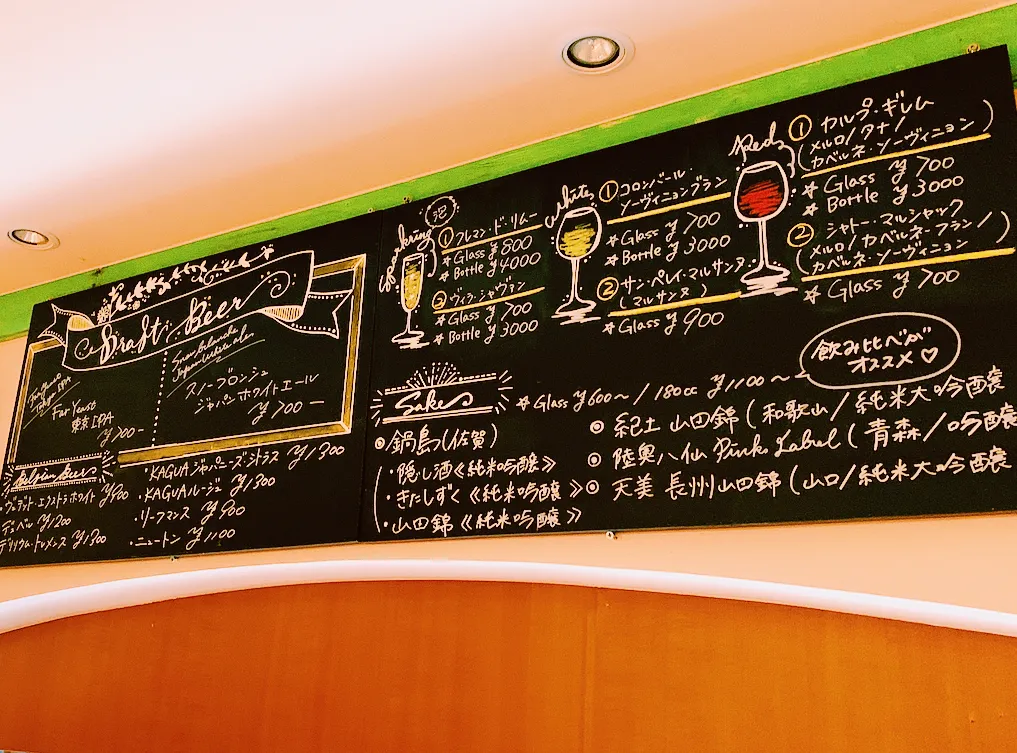 Draft Beer
Far Yeast
東京 IPA
Far Yeast
東京 IPA
¥700-
Snow Blanche
Japan white ale
スノーブロンシュ
ジャパンホワイトエール
¥700-
Belgian Beer
エクストラホワイト ¥900
デュベル ¥1200
デリリウム・トレメンス ¥1300
・KAGUA ジャパニーズ・シトラス ¥1300
・KAGUA ルージュ ¥1300
・リーフマンス ¥900
・ニュートン ¥1100
Sparkering
泡
① フレマン・ド・リムー
☆ Glass ¥800
☆ Bottle ¥4000
② ヴィラ・ジョヴァン
☆ Glass ¥700
☆ Bottle ¥3000
white
① コロンバール・
ソーヴィニョンブラン
☆ Glass ¥700
☆ Bottle ¥3000
② サン・ペレイ・マルサンヌ
(マルサンヌ)
☆ Glass ¥900
Red
① カルプ・ギレム
(メルロ/タナ/
カベルネ・ソーヴィニョン)
☆ Glass ¥700
☆ Bottle ¥3000
② シャトー・マルシャック
(メルロ/カベルネ・フラン/
カベルネ・ソーヴィニョン)
☆ Glass ¥700
Sake
☆ Glass ¥600～/180cc ¥1100～
飲み比べが
オススメ♡
◎ 鍋島(佐賀)
・隠し酒《純米吟醸》
・きたしずく《純米吟醸》
・山田錦《純米吟醸》
◎ 紀土 山田錦 (和歌山/純米大吟醸
◎ 陸奥八仙 Pink Label (青森/吟醸
◎ 天美 長州山田錦 (山口/純米大吟醸